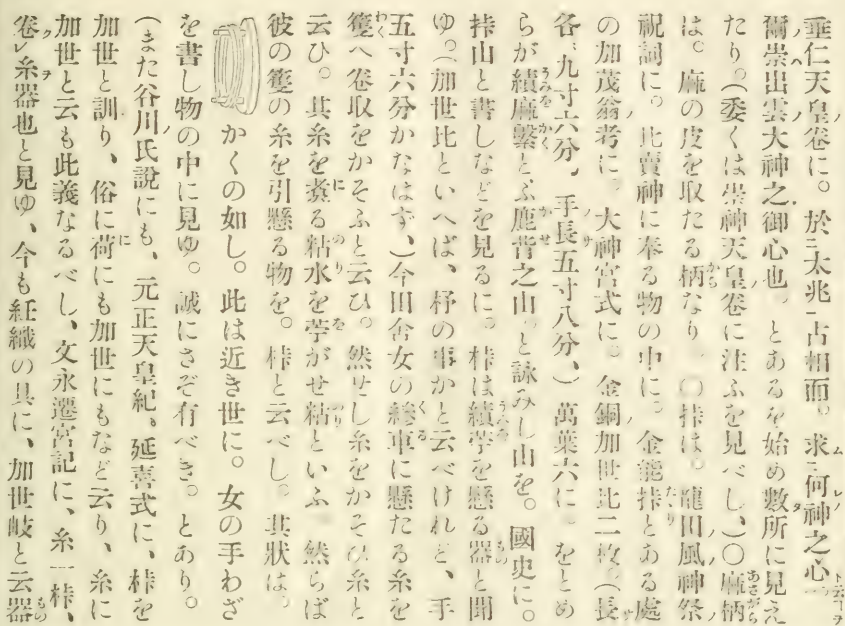 垂仁天皇卷に。於㆓太兆㆒占相而。求㆓何神之心㆒
爾祟出雲大神之御心也。とあるを始め數所に見え
たり。(委くは崇神天皇卷に注ふを見べし、)○麻柄
は。麻の皮を取たる柄なり。○挊は。龍田風神祭
祝詞に。比賣神に奉る物の中に。金能挊とある處
の加茂翁考に。大神宮式に。金銅加世比二枚。(長
各九寸六分、手長五寸八分、)萬葉六に。をとめ
らが績麻繫とふ鹿背之山。と詠みし山を。國史に。
挊山と書しなどを見るに。桛は績苧を懸る器と聞
ゆ。(加世比といへば、杼の事かと云べけれど、手
五寸六分かなはず、)今田舍女の繀車に懸たる糸を
籰へ卷取をかそふと云ひ。然せし糸をかそひ糸と
云ひ。其糸を煑る粘水を苧がせ粘といふ 然らば
彼の籰の糸を引懸る物を。桛と云べし。其狀は。
かくの如し。此は近き世に。女の手わざ
を書し物の中に見ゆ。誠にさぞ有べき。とあり。
(また谷川氏說にも、元正天皇紀。延喜式に、桛を
加世と訓り、俗に荷にも加世にもなど云り、糸に
加世と云も此義なるべし、文永遷宮記に、糸一桛、
卷㆑糸器也と見ゆ、今も紝織の具に、加世岐と云器